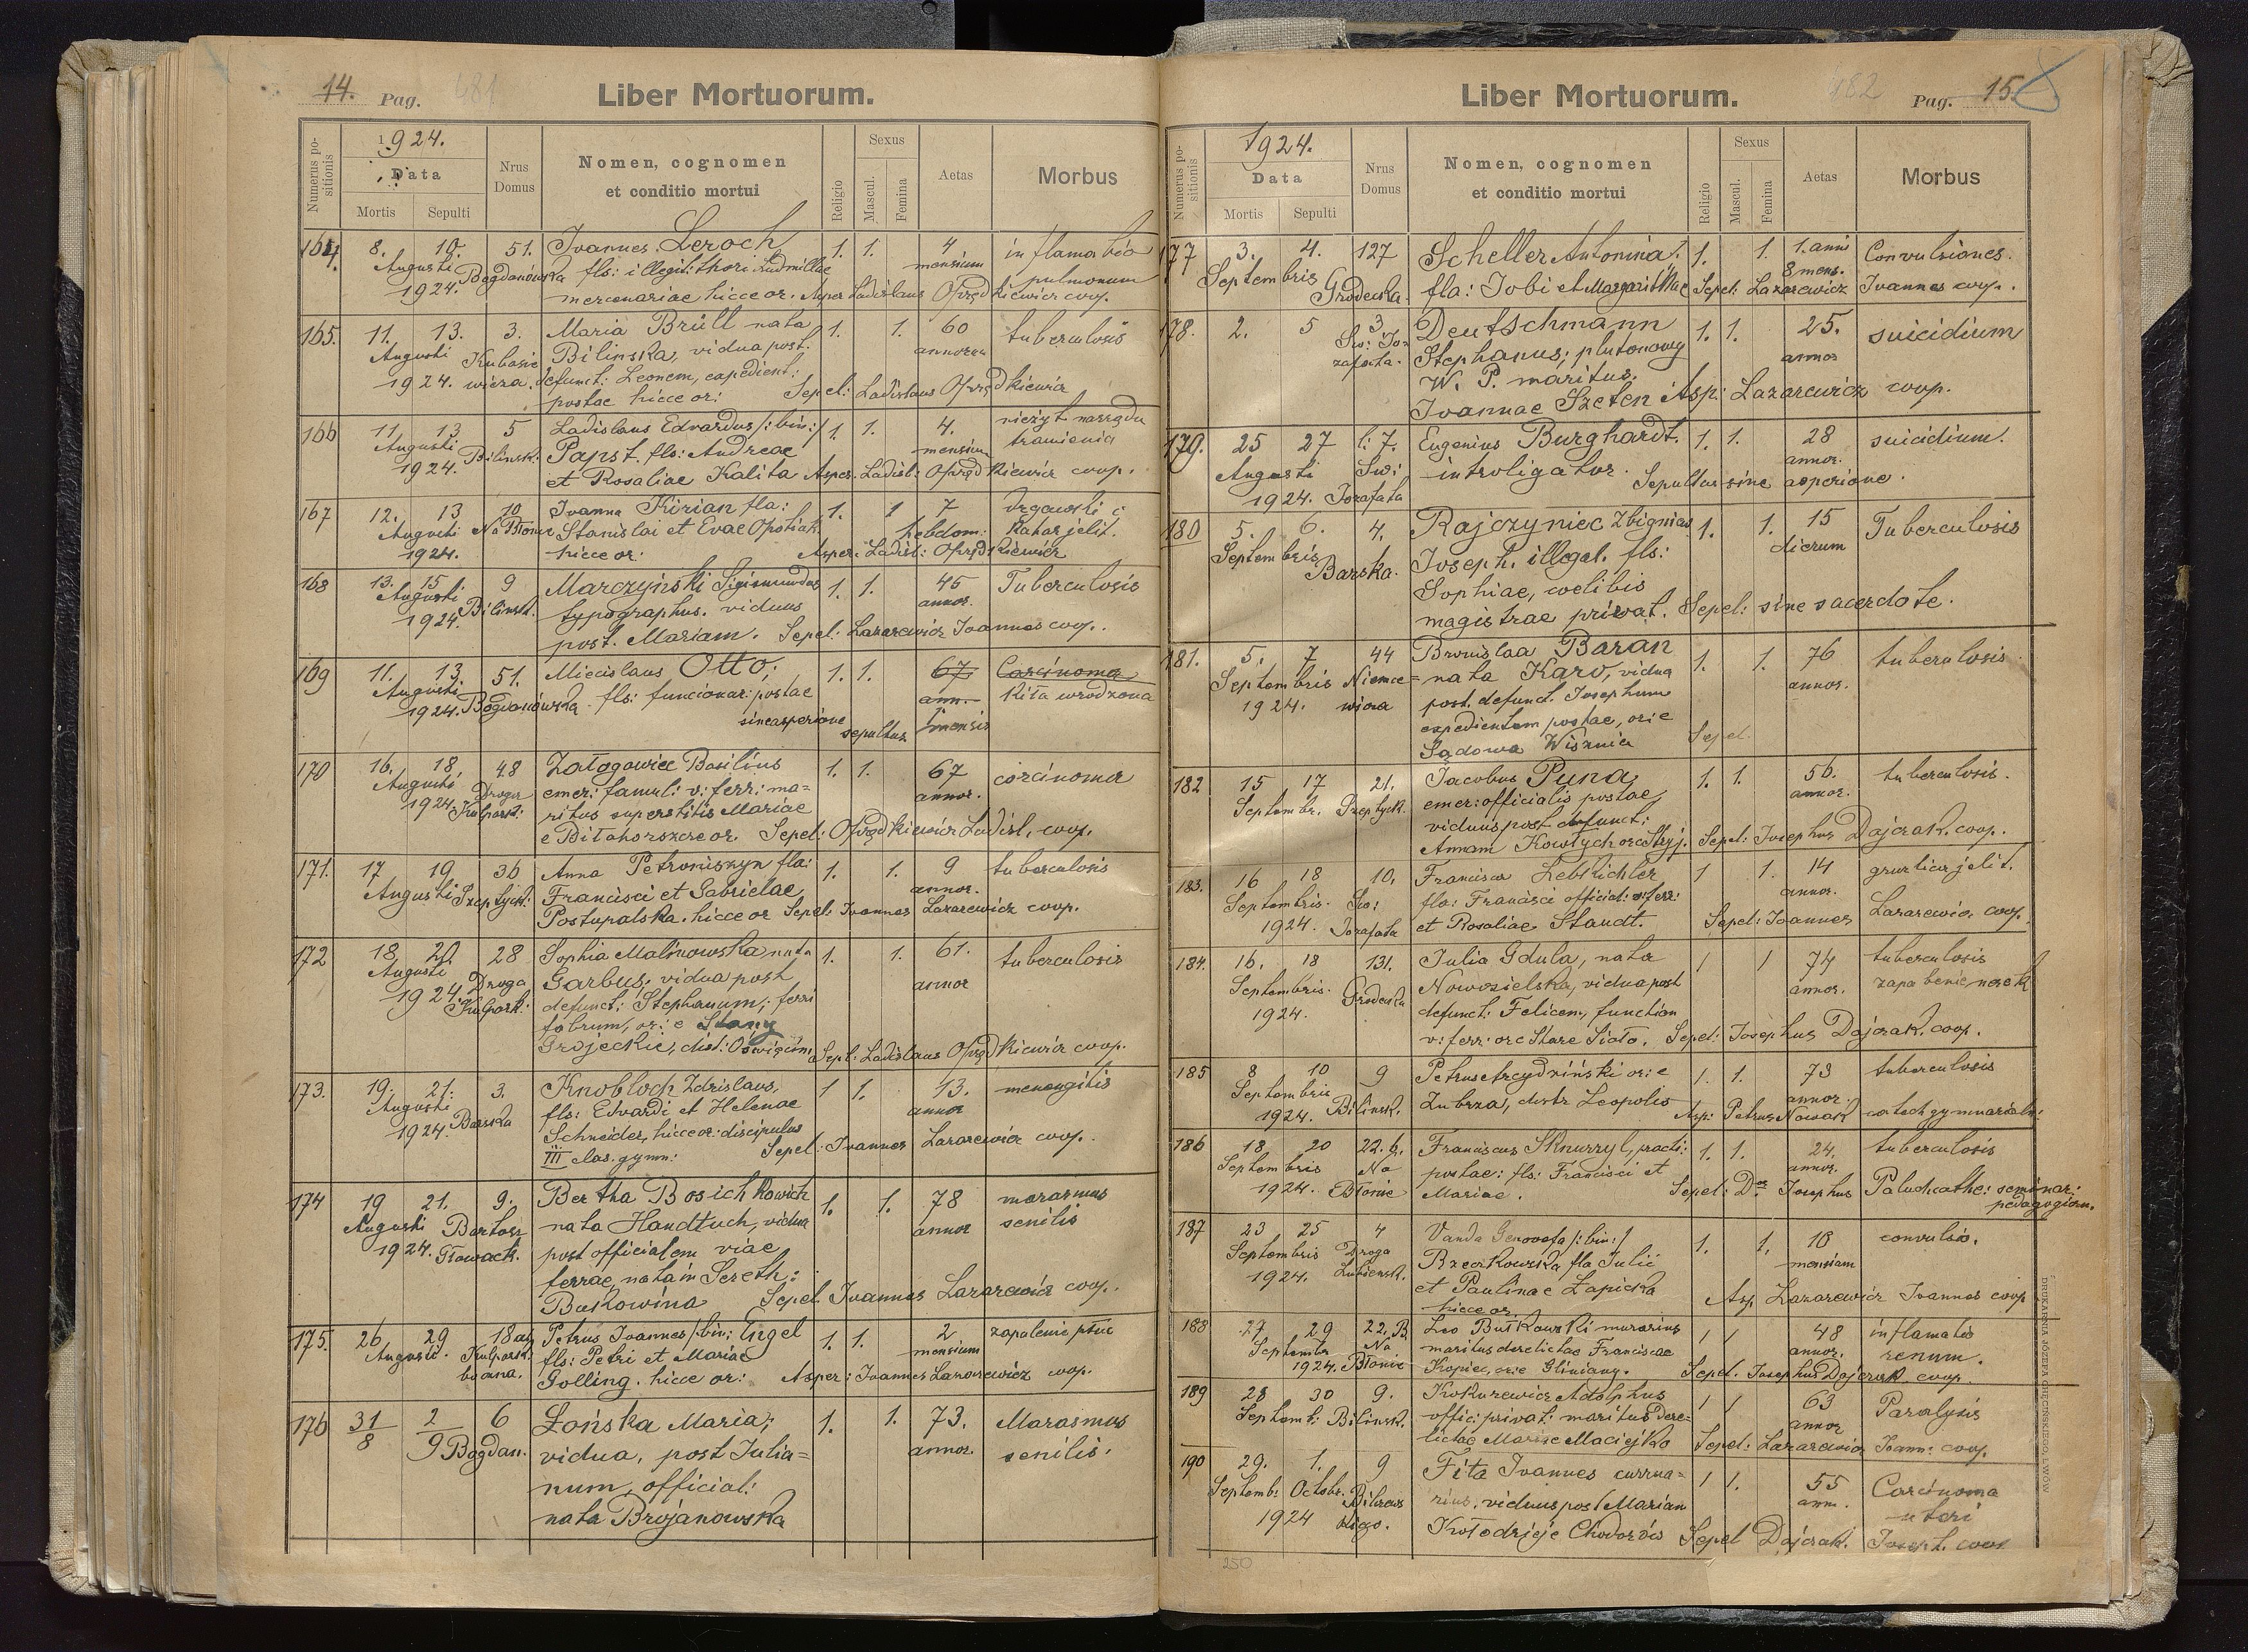 14. Pag. 481
Liber Mortuorum.
Numerus positionis
1924.
Data
Mortis Sepulti
Nrus Domus
Nomen, cognomen
et conditio mortui
Religio
Sexus
Mascul.
Femina
Aetas
Morbus
164. 8. 10. 51. Ioannes Leroch 1. 1. 4 inflamatio
Augusti Bogdanówska fls: illegit: thori Ludmillae mensium pulmonum
1924. mercenariae hicce or. Asper Ladislaus Oprzędkiewicz coop.
165. 11. 13. 3. Maria Brüll nata 1. 1. 60 tuberculosis
Augusti Kubasie Bilinska, vidua post. annorum
1924. wicza. defunct: Leonem, expedient:
postae hicce or: Sepel: Ladislaus Oprzędkiewicz
166 11. 13 5 Ladislaus Edvardus /:bin:/ 1. 1. 4. nieżyt narządu
Augusti Bilinsk: Papst. fls: Andreae mensium trawienia
1924. et Rosaliae Kalita Asper. Ladisl: Oprzędkiewicz coop.
167 12. 13 10 Ioanna Kirian fla: 1. 1 7 Drgawki i
Augusti Na Błonie Stanislai et Evae Opatiak hebdom: Katar jelit.
1924. hicce or: Asper: Ladisl: Oprzędkiewicz
168 13. 15. 9 Marczyński Sigismundus 1. 1. 45 Tuberculosis
Augusti Bilinsk. typographus. viduus annor.
1924. post. Mariam. Sepel: Lazarewicz Ioannes coop.
169 11. 13. 51. Miecislaus Otto; 1. 1. 67 Carcinoma
Augusti Bogdanówska. fls: funcionar: postae ann. Kiła wrodzona
1924. sine asperione sepultus 1 mensis
170 16. 18 48 Załogowiec Basilius 1. 1. 67 carcinoma
Augusti Droga emer: famuli v: ferr: ma= annor.
1924. Kulpark: ritus superstitis Mariae
e Biłohorszcze or. Sepel: Oprzędkiewicz Ladisl. coop.
171. 17 19 36 Anna Petroniszyn fla: 1. 1. 9 tuberculosis
Augusti Szeptyck: Francisci et Gabrielae annor.
Postupalska. hicce or Sepel: Ioannes Lazarewicz coop.
172 18. 20. 28 Sophia Malinowska nata 1. 1. 61. tuberculosis
Augusti Droga Garbus, vidua post annor
1924. Kulpark: defunct: Stephanum; ferri
fabrum, or: e Stany
Grojeckie, dist: Oswięcim. Sepl: Ladislaus Oprzędkiewicz coop.
173. 19. 21. 3. Knobloch Zdzislaus, 1 1. 13. menengitis
Augusti Barska fls: Edvardi et Helenae annor
1924. Schneider, hicce or: discipulus
III clas. gymn: Sepel: Ioannes Lazarewicz coop.
174 19 21. 9. Bertha Bosichkowich 1. 1. 78 marasmus
Augusti Bartosz nata Handtuch, vidua annor senilis
1924. Głowack. post officialem viae
ferrae, nata in Sereth:
Bukowina Sepel Ioannes Lazarewicz coop.
175. 26. 29 18 Petrus Ioannes /:bin: Engel 1. 1. 2 zapalenie płuc
Augusti. Kulpark: fls: Petri et Mariae mensium
Golling. hicce or: Asper: Ioannes Lazarewicz coop.
176 31/8 2/9 6 Łońska Maria; 1. 1. 73. Marasmus
Bogdan. vidua, post Iulia= annor. senilis.
num, official:
nata Brojanowska
482 Pag. 15.
Liber Mortuorum.
Numerus positionis
1924.
Data
Mortis Sepulti
Nrus Domus
Nomen, cognomen
et conditio mortui
Religio
Sexus
Mascul.
Femina
Aetas
Morbus
177 3. 4. 127 Scheller Antonina. 1. 1. 1. anni Convulsiones.
Septembris Grodecka. fla: Iobi et Margarithae 8 mens. Sepel: Lazarewicz Ioannes coop.
178. 2. 5 3 Deutschmann 1. 1. 25. suicidium
Św: Jo= zafata. Stephanus; plutonowy annor
W. P. maritus.
Ioannae Szeten Asp: Lazarewicz coop.
179. 25 27 l: 7. Eugenius Burghardt. 1. 1. 28 suicidium.
Augusti Św: introligator. annor.
1924. Jozafata Sepultus sine asperione.
180 5. 6. 4. Rajczyniec Zbignias 1. 1. 15 Tuberculosis
Septembris Barska. Ioseph. illegal. fls: dierum
Sophiae, coelibis
magistrae privat. Sepel: sine sacerdote.
181. 5. 7 44 Bronislaa Baran 1. 1. 76 tuberculosis
Septembris Niemce= nata Karo, vidua annor.
1924. wicza post. defunct. Iosephum
expedientem postae, or: e
Sądowa Wisznia Sepel.
182 15 17 21. Iacobus Puna, 1. 1. 56. tuberculosis.
Septembr. Szeptyck. emer: officialis postae, annor.
viduus post defunct:
Annam Kowtych or e Stryj. Sepel: Iosephus Dajczak. coop.
183. 16 18 10. Francisca Leblichler 1 1. 14 gruźlica jelit.
Septembris. Św: fla: Francisci official: v: ferr: annor.
1924. Jozafata et Rosaliae Staudt. Sepel: Ioannes Lazarewicz coop.
184. 16. 18 131. Iulia Gdula, nata 1 1 74 tuberculosis
Septembris. Grodecka Nowosielska, vidua post annor. zapalenie nerek
1924. defunct: Felicem, function
v: ferr: or e Stare Sioło. Sepel: Iosephus Dajczak. coop.
185 8 10 9 Petrus Arcydziński or: e 1. 1. 73 tuberculosis
Septembris Bilinsk. Zubrza, distr Leopolis annor.
1924. Asp: Petrus Nowak catech gymnazialn:
186 18 20 22. b. Franciscus Sknurzyl, practi: 1. 1. 24. tuberculosis
Septembris Na postae: fls: Francisci et annor.
1924. Błonie Mariae. Sepel: Dor Iosephus Paluch cathe: seminar: pedagogicum.
187 23 25 4 Vanda Genovefa /:bin:/ 1. 1. 10 convulsio.
Septembris Droga Brzeczkowska fla Iulii mensium
1924. Lubiensk. et Paulinae Łapicka
hicce or. Asp Lazarewicz Ioannes coop
188 27 29 22. B. Leo Bułkowski murarius 1 1 48 inflamatio
Septembr Na maritus derelictae Franciscae annor. renum.
1924. Błonie Kopiec, or: e Gliniany. Sepel. Iosephus Dajczak. coop.
189 28 30 9. Kokurewicz Adolphus 1 1 63 Paralysis
Septemb: Bilinsk. offic: privat: maritus dere= annor
lictae Mariae Maciejko Sepel: Lazarewicz Ioann: coop.
190 29. 1. 9 Fita Ioannes currua= 1 1. 55 Carcinoma
Septemb: Octobr. rius, viduus post Marian ann. uteri
1924 Kołodzieje Chodorów Sepel Dajczak. Ioseph. coop
250
DRUKARNIA JÓZEFA CHĘCIŃSKIEGO, LWÓW